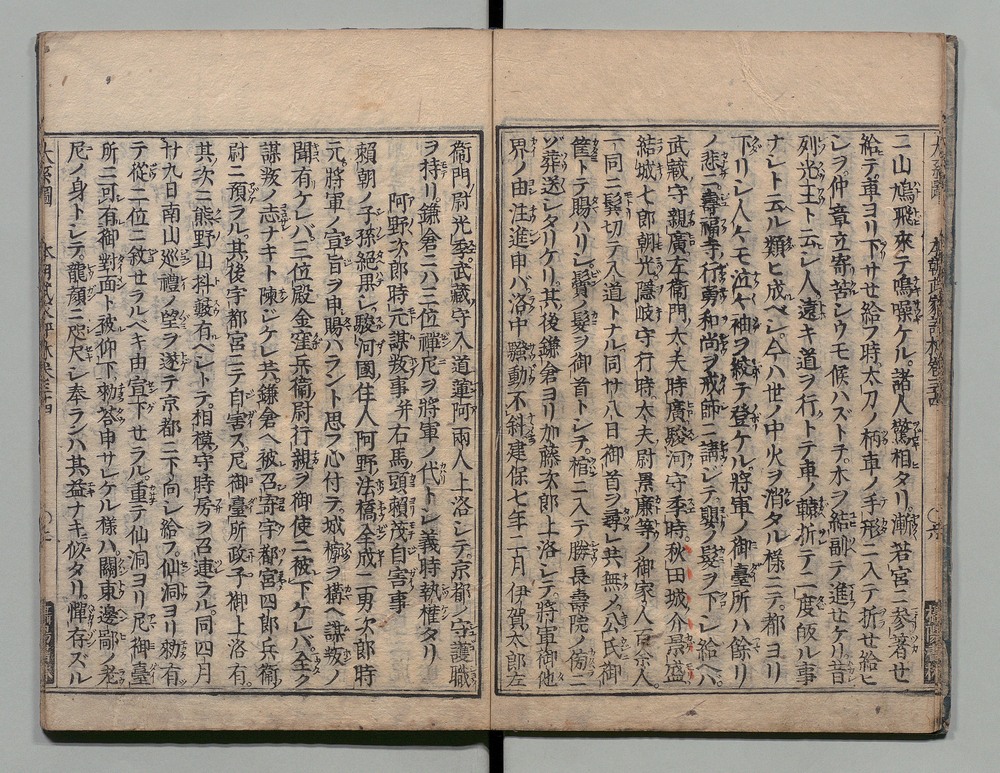 ニ山鳩飛來テ鳴噪ケル。諸人驚相タリ。漸若宮ニ參著せ
給テ車ヨリ下サせ給フ時太刀ノ柄車ノ手形ニ入テ折せ給ヒ
シヲ。仲章立寄苦シウモ候ハズトテ。木ヲ結副テ進せケリ。昔
列光王ト云シ人遠キ道ヲ行トテ車ノ轅折テ二度皈ル事
ナシト云ル類ヒ成ベシ。今ハ世ノ中火ヲ消タル様ニテ。都ヨリ
下リシ人々モ泣々袖ヲ絞テ登ケル。將軍ノ御臺所ハ餘リ
ノ悲ニ壽福寺行勇和尚ヲ戒師ニ請シテ。翠ノ髪ヲ下シ給ヘハ
武蔵守親廣。左衛門大夫時廣。駿河守季時。秋田城介景盛
結城七郎朝光。隱岐守行時。大夫尉景廉等ノ御家人百余人。
一同ニ髻切テ入道トナル。同廿八日御首ヲ尋シ共無メ。公氏御
ニテ賜ハリシ鬢髪ヲ御首トシテ。棺ニ入テ勝長壽院ノ傍ニ
ゾ葬送シタリケリ。其後鎌倉ヨリ加藤次郎上洛シテ。將軍御他
界ノ由注進申バ洛中騒動不斜。建保七年二月伊賀太郎左
衛門尉光季。武蔵守入道蓮阿兩人上洛シテ。京都ノ守護職
ヲ持リ。鎌倉ニハ二位禪尼ヲ將軍ノ代トシ義時執權タリ
阿野次郎時元謀叛事并右馬頭頼茂自害事
頼朝ノ子孫絶果シ。駿河國住人阿野法橋全成二男次郎時
元。將軍ノ宣旨ヲ申賜ハラント思フ心付テ。城槨ヲ構ヘ謀叛ノ
聞有ケレバ。二位殿金窪兵衛尉行親ヲ御使ニ被下ケレバ。全ク
謀叛ノ志ナキト陳ジケレ共。鎌倉ヘ被召寄宇都宮四郎兵衛
尉ニ預ラル。其後宇都宮ニテ自害ス。尼御臺所政子御上洛有。
其次ニ熊野山抖擻有ベシトテ。相模守時房ヲ召連ラル。同四月
廿九日南山巡禮ノ望ヲ遂テ京都ニ下向シ給フ。仙洞ヨリ勅有
テ從二位ニ叙せラルベキ由宣下せラル。重テ仙洞ヨリ尼御臺
所ニ可有御對面ト被仰下。勅答申サレケル様ハ。關東邊鄙ノ老
尼ノ身トシテ。龍顔ニ咫尺シ奉ランハ其益ナキ似タリ。憚存ズル